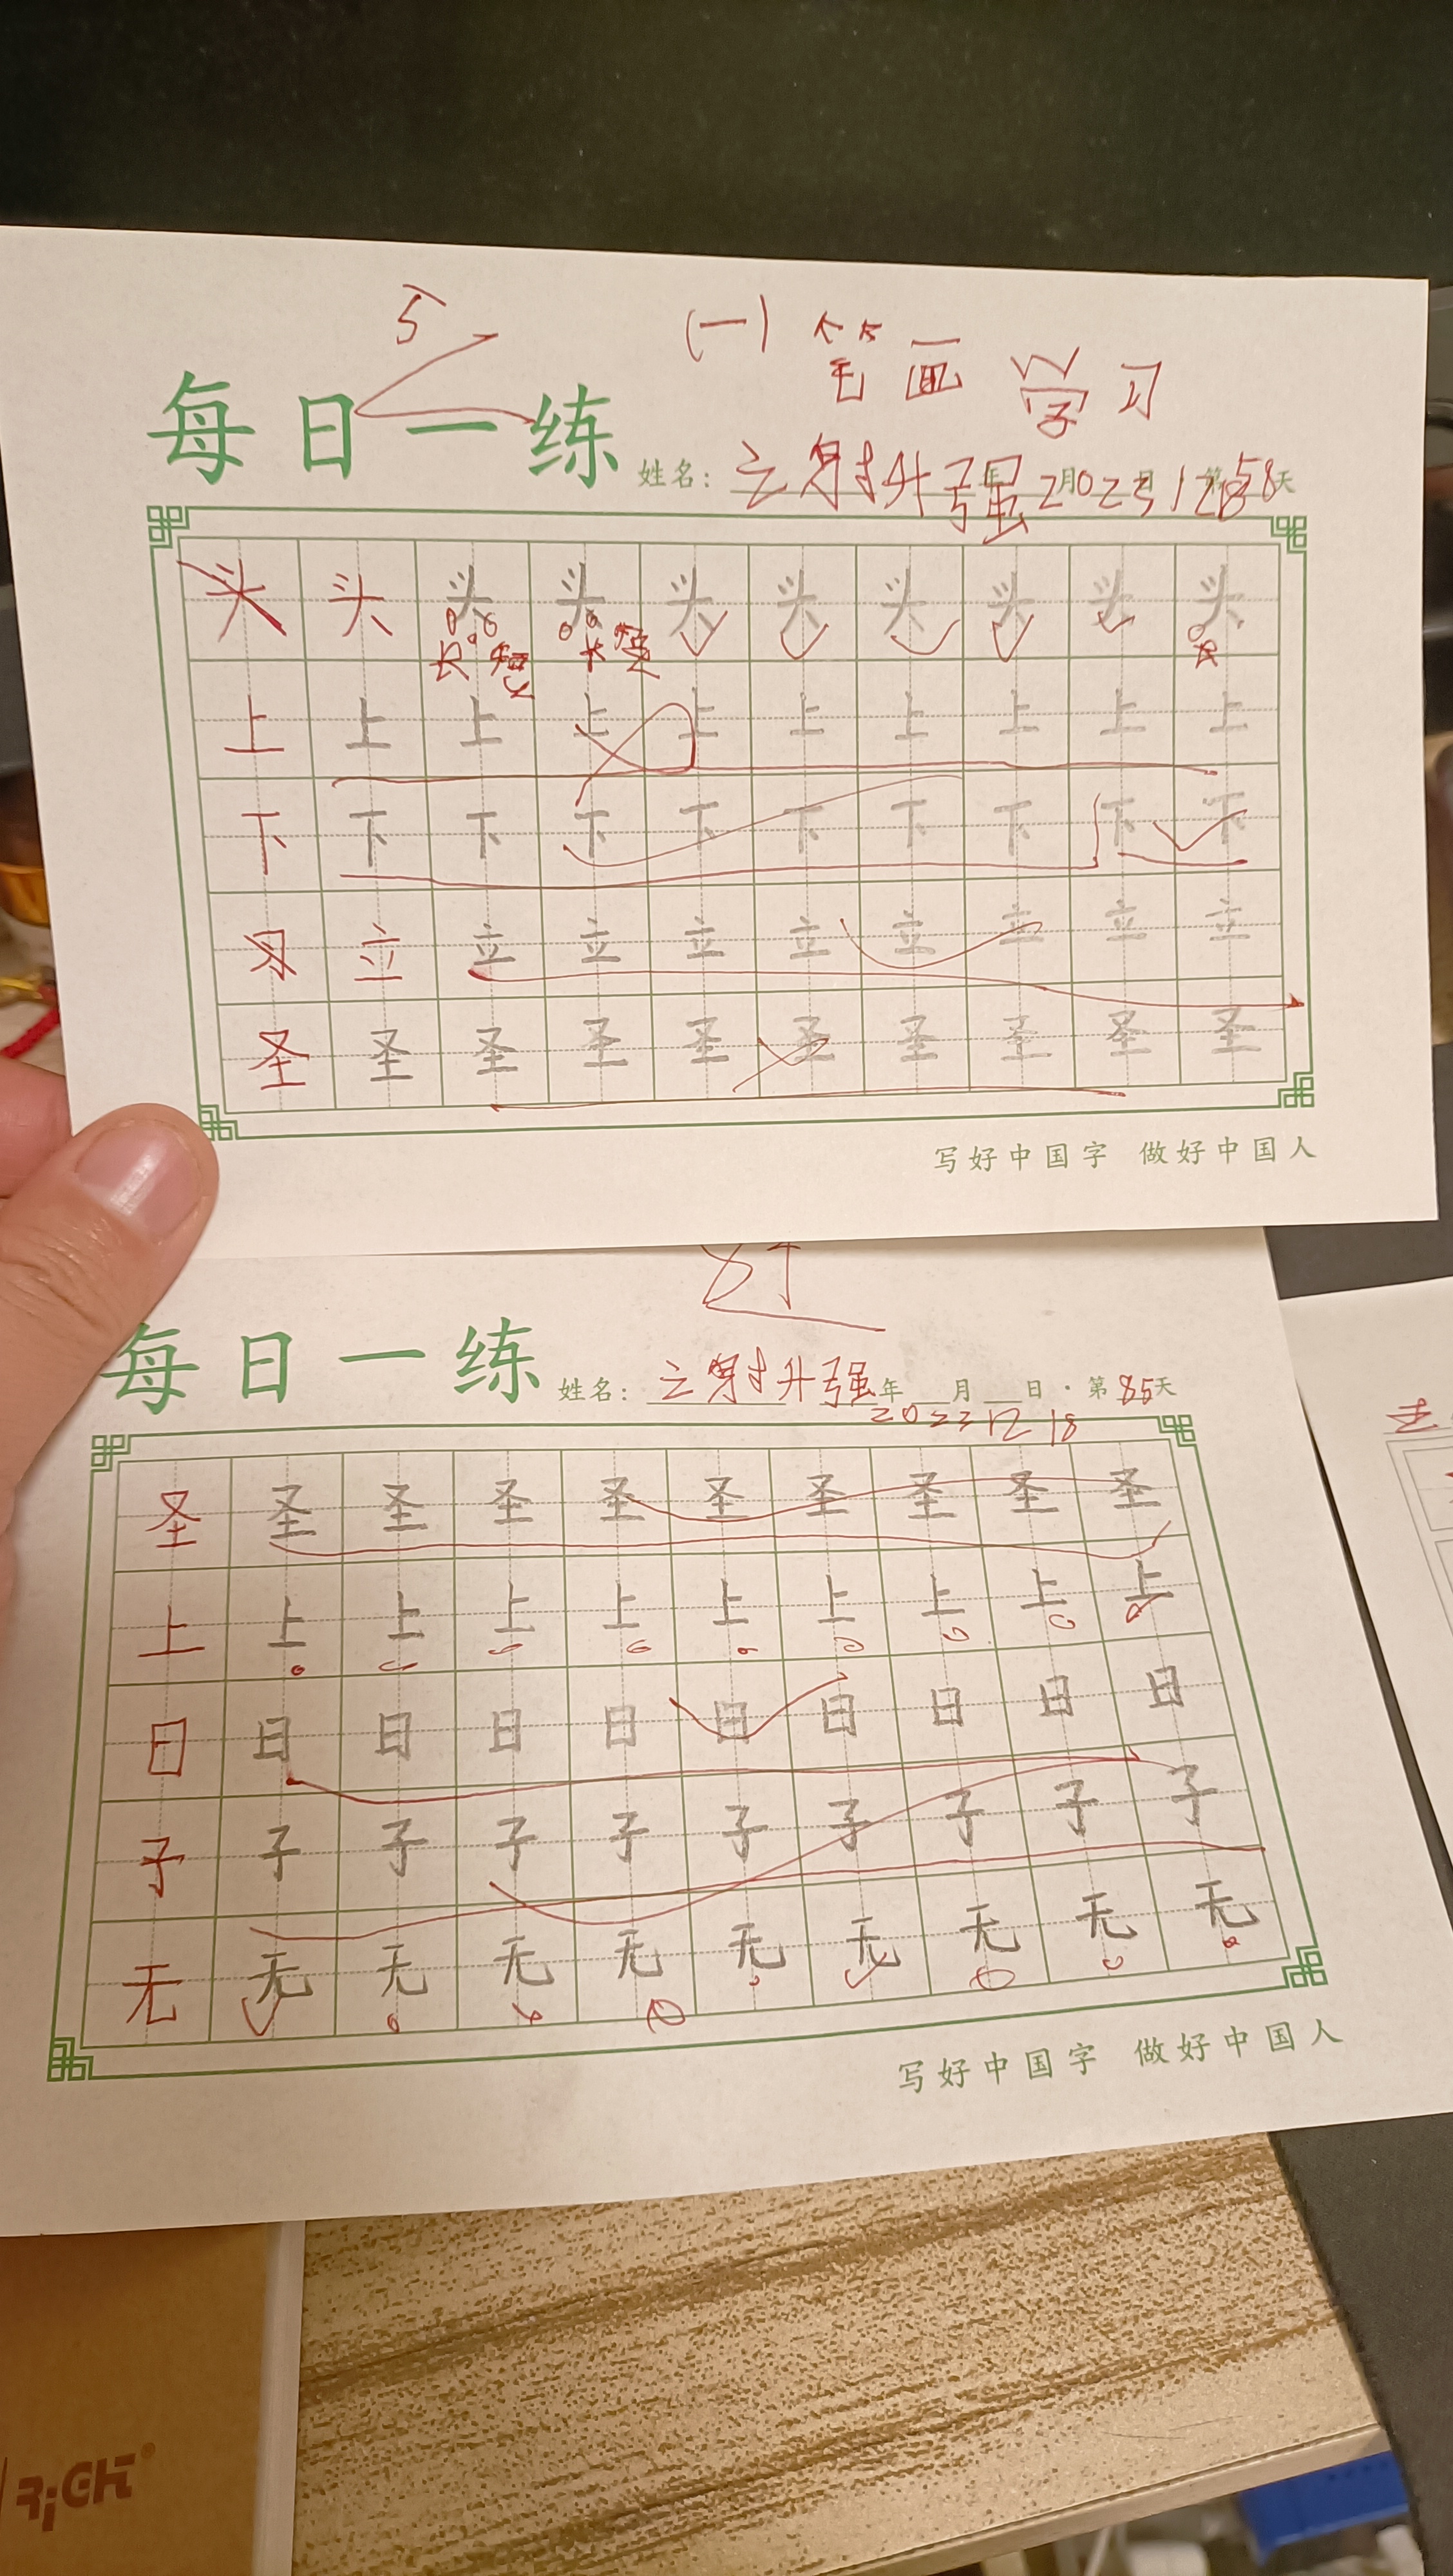 5
(一) 笔画学习
每日一练
姓名: 年 月 日 第58天
2023 12 8
头 头 头 头 头 头 头 头 头 头
长 短 长 短 长
上 上 上 上 上 上 上 上 上 上
下 下 下 下 下 下 下 下 下 下
立 立 立 立 立 立 立 立 立
圣 圣 圣 圣 圣 圣 圣 圣 圣 圣
写好中国字 做好中国人
每日一练
姓名: 年 月 日·第85天
2023 12 18
圣 圣 圣 圣 圣 圣 圣 圣 圣 圣
上 上 上 上 上 上 上 上 上 上
日 日 日 日 日 日 日 日 日 日
子 子 子 子 子 子 子 子 子 子
无 无 无 无 无 无 无 无 无 无
写好中国字 做好中国人
RiGHT®